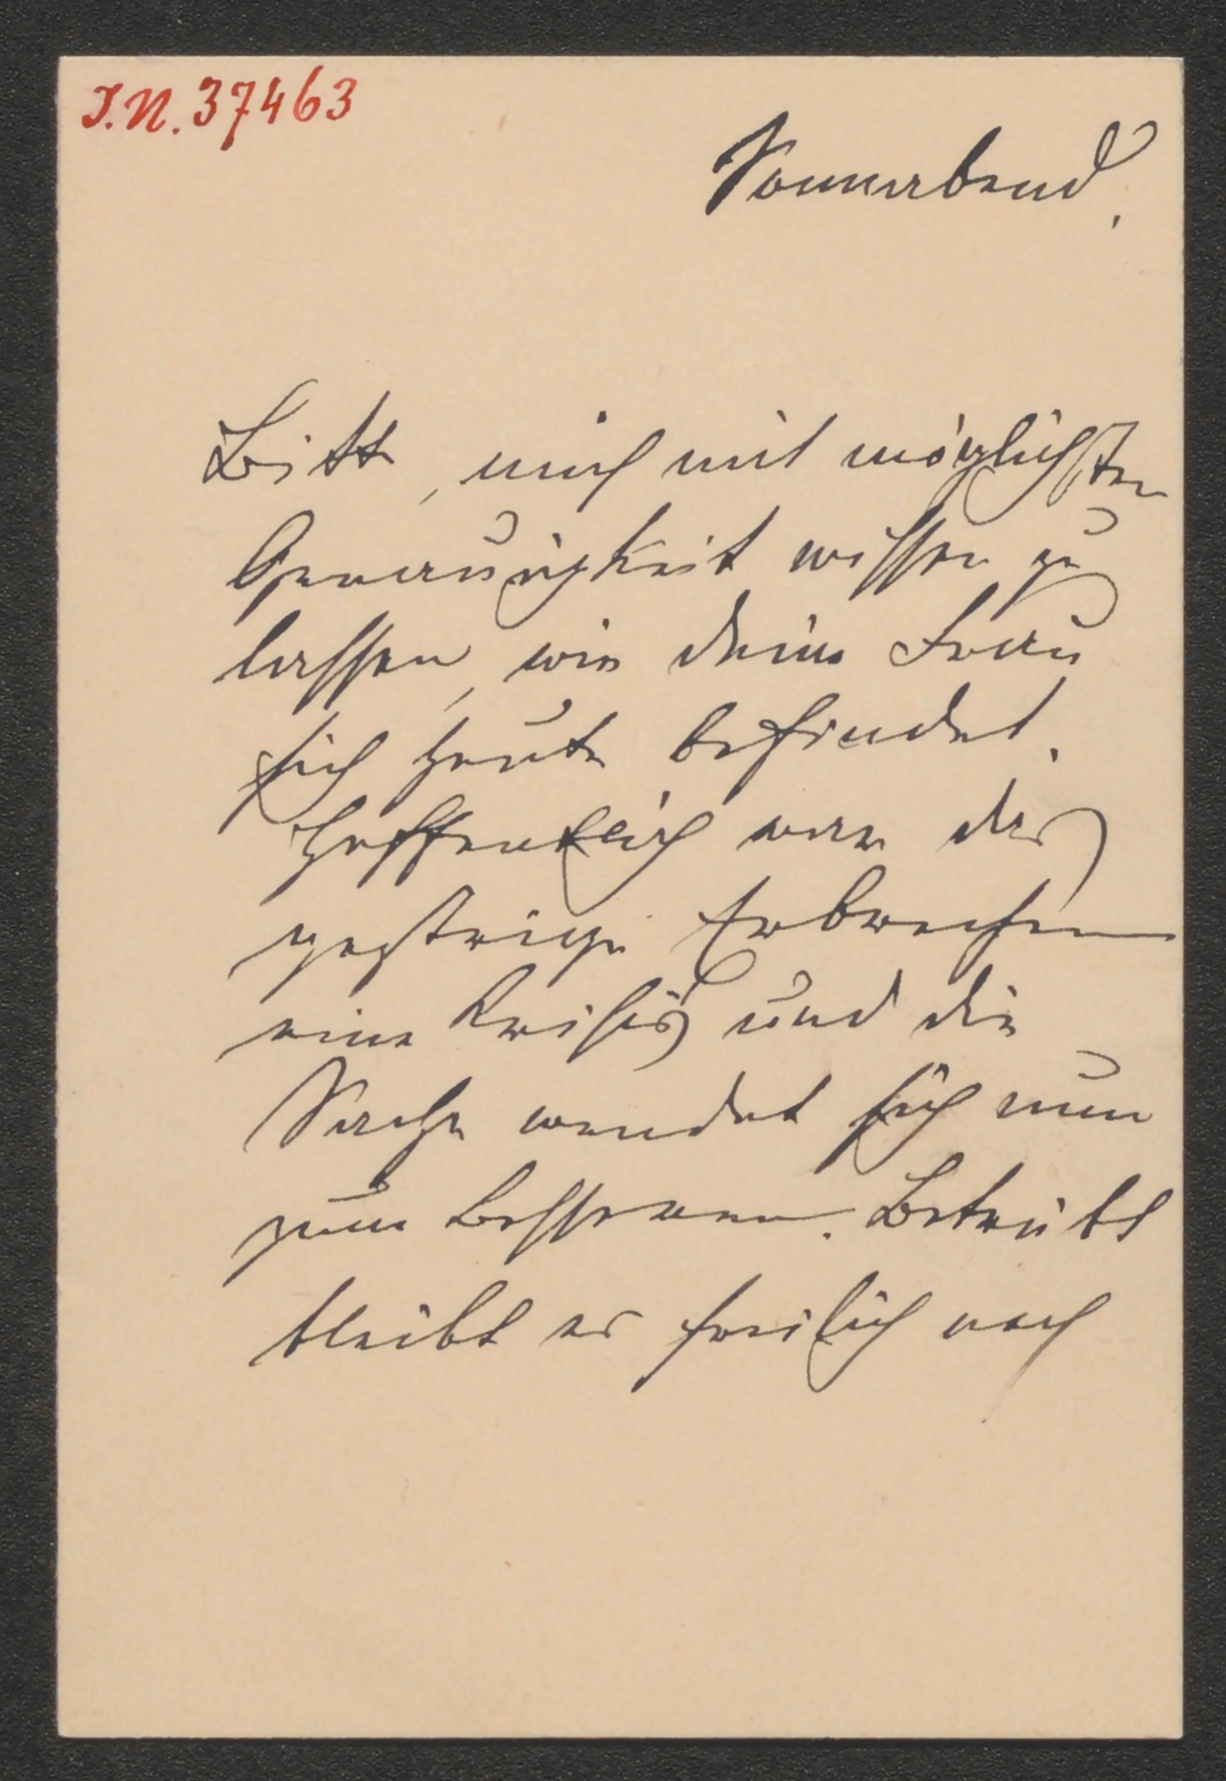 I.N. 37463
Sonnabend,
Bitte, mich mit möglichster
Genauigkeit wissen zu
lassen, wie deine Frau
sich heute befindet.
Hoffentlich war das
gestrige Erbrechen
eine Krisis und die
Sache wendet sich nun
zum Besseren. Betrübt
bleibt es freilich noch